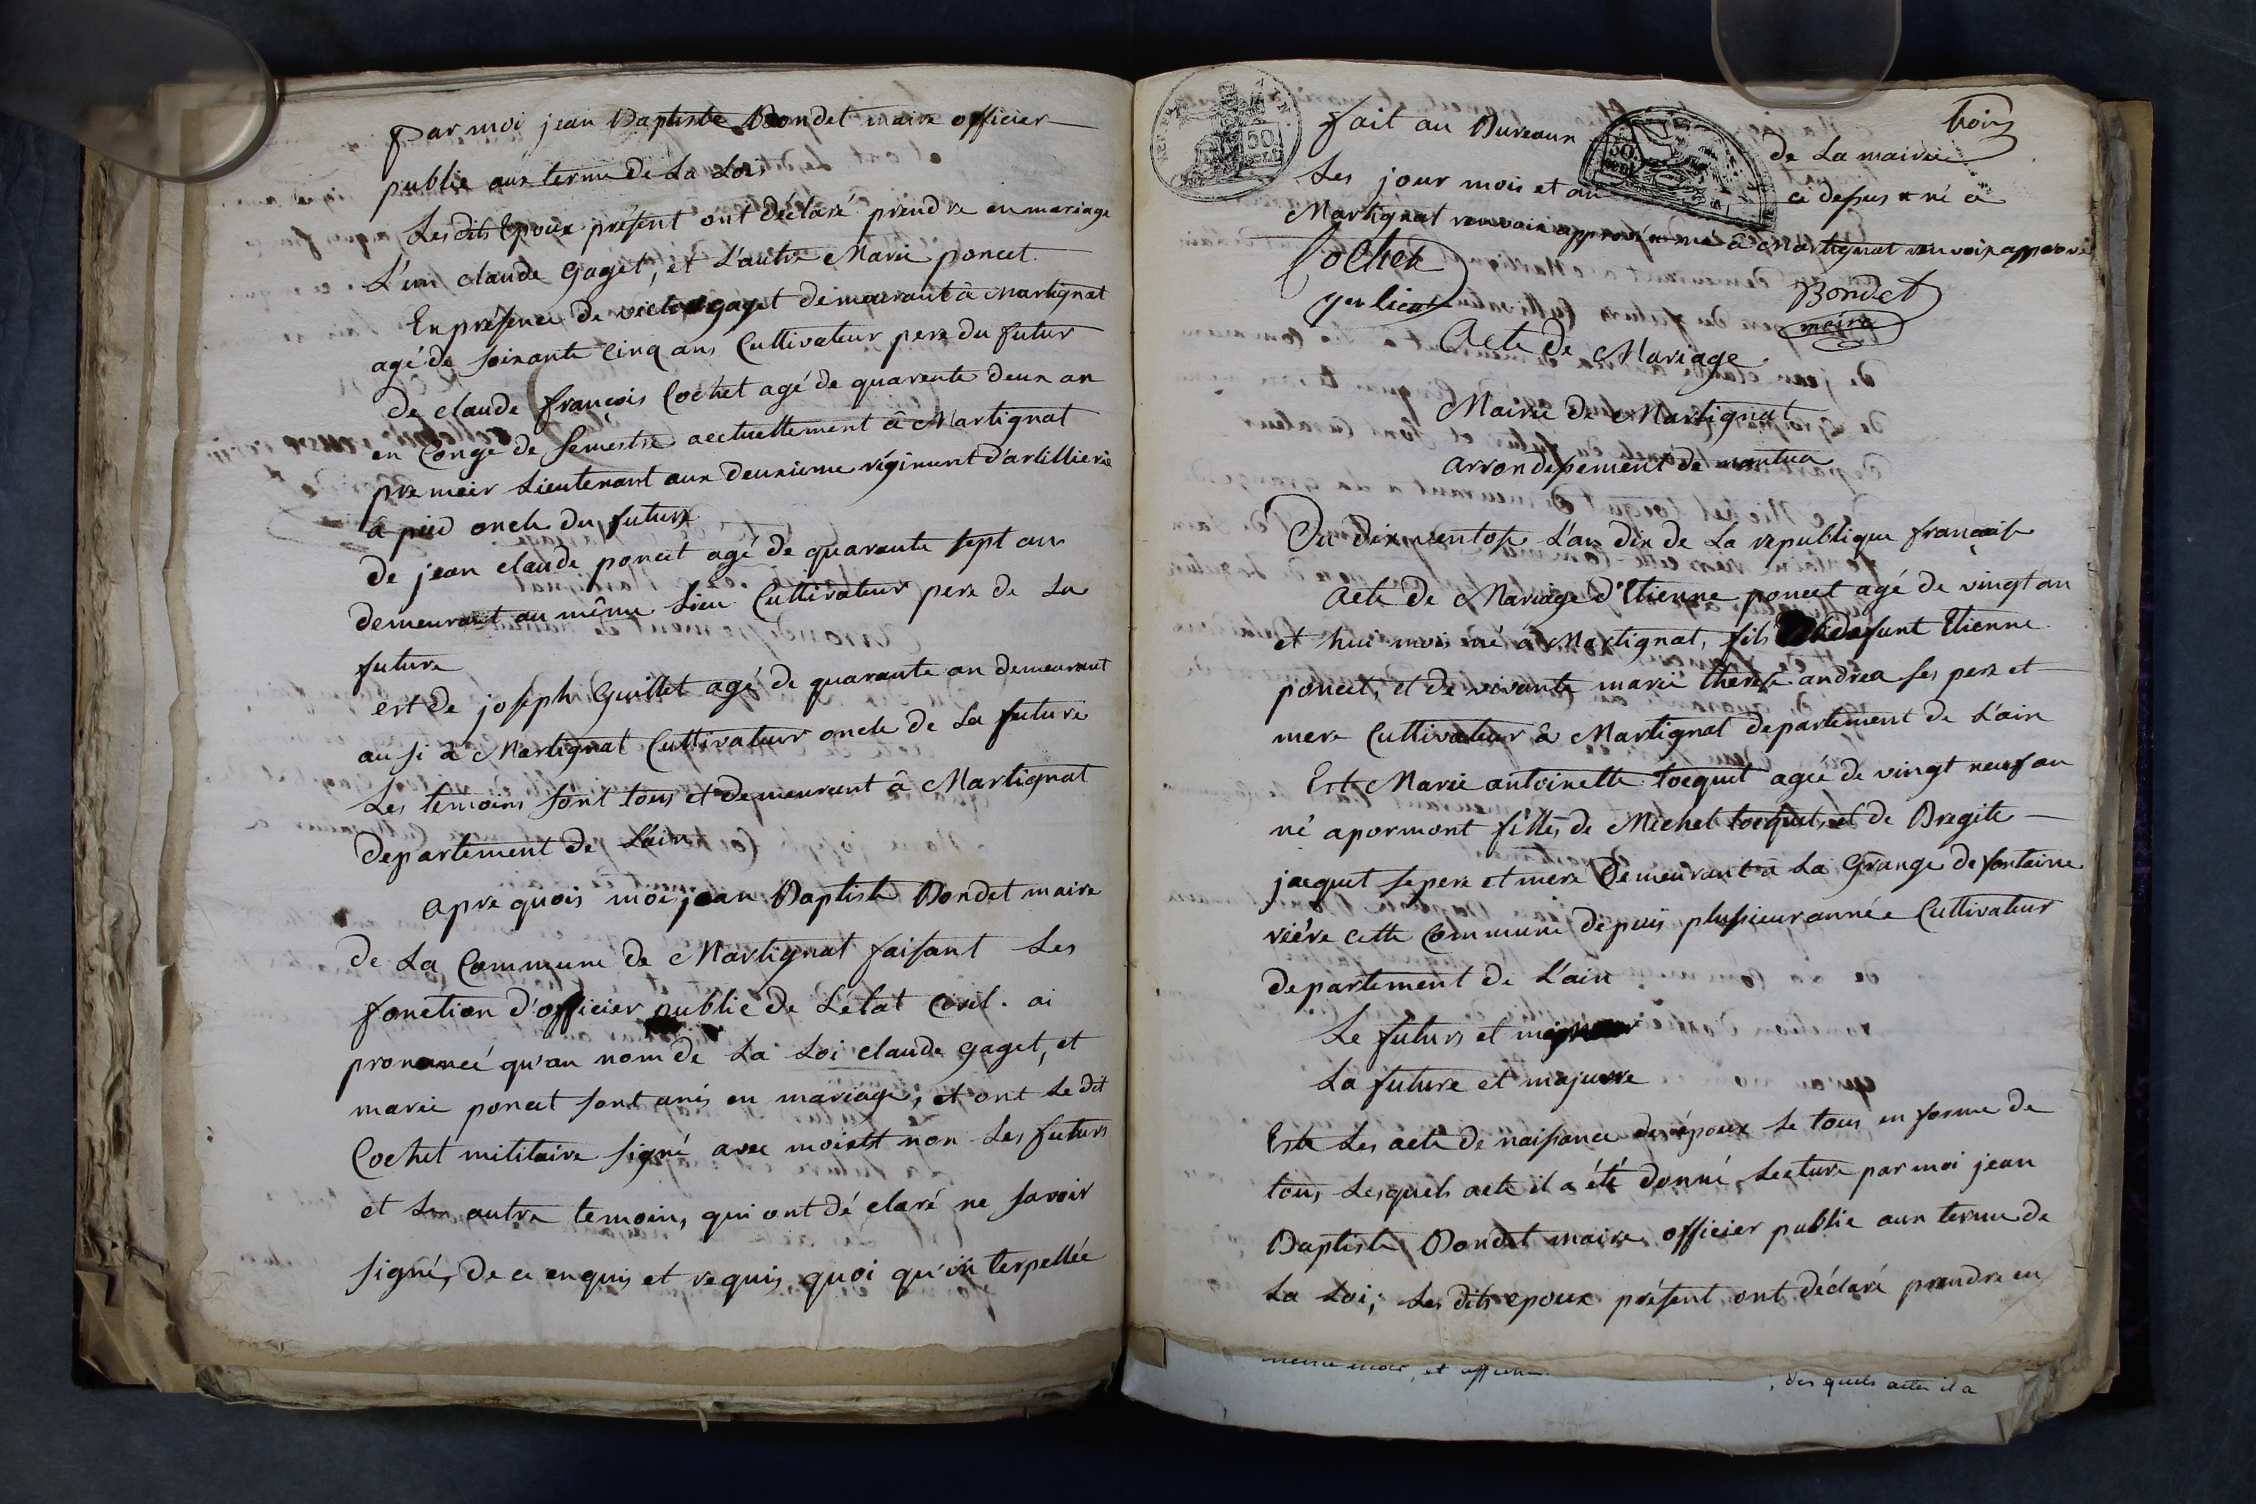 par moi jean Baptiste Bondet maire officier
public aux terme de La Loi
Lesdits Epoux présent ont déclaré prendre en mariage
L'un claude gaget, et L'autre Marie poncet
En présence de victor gaget demeurant â Martignat
agé de soixante cinq ans Cultivateur pere du futur
de claude françois Cochet agé de quarente deux an
en Congé de semestre acctuellement â Martignat
premeir Lieutenant aux deuxieme régiment d'artillierie
â pied oncle du futurs
de jean claude poncet agé de quarante sept ans
demeurant au même Lieu Cultivateur pere de La
future
est de joseph Guillet agé de quarante an demeurant
aussi â Martignat Cultivateur oncle de La future
Les temoins sont tous et demeurant â Martignat
departement de L'ain
apre quois moi jean Baptiste Bondet maire
de La Commune de Martignat faisant Les
fonction d'officier public de L'état Civil. ai
prononcé qu'au nom de La Loi claude gaget, et
marie poncet sont unis en mariage, et ont Le dit
Cochet militaire signé avec moi et non Les futurs
et Les autre temoins, qui ont déclaré ne savoir
signé, de ce enquis et requis quoi qu'intterpellée
trois
fait au Bureaux de La mairie
Les jour mois et an ci dessus # né â
Martignat renvoix apprové # né â Martignat renvoix apprové
Cochet
1er lieut
Bondet
maire
Acte de Mariage
Mairie de Martignat
arrondissement de nantua
Du dix ventose L'an dix de La republique française
Acte de Mariage d'Etienne poncet agé de vingt an
et huit mois né â Martignat, fils de defunt Etienne
poncet, et de vivante marie therese andrea ses pere et
mere Cultivateur â Martignat departement de L'ain
Est Marie antoinette tocquet agée de vingt neuf an
né apormont filles de Michel tocquet, et de Bregite
jacquet se pere et mere demeurant â La Grange de fontaine
riére cette Commune depuis plusieur année Cultivateur
departement de L'ain
Le futurs et mineur
La future et majeure
Este Les acte de naissance des épour Le tous en forme de
tous, Lesquels acte il a été donné Lecture par moi jean
Baptiste Bondet maire officier public aux terme de
La Loi; Les dits epoux présent ont déclaré prendre en
, des quels actes il a